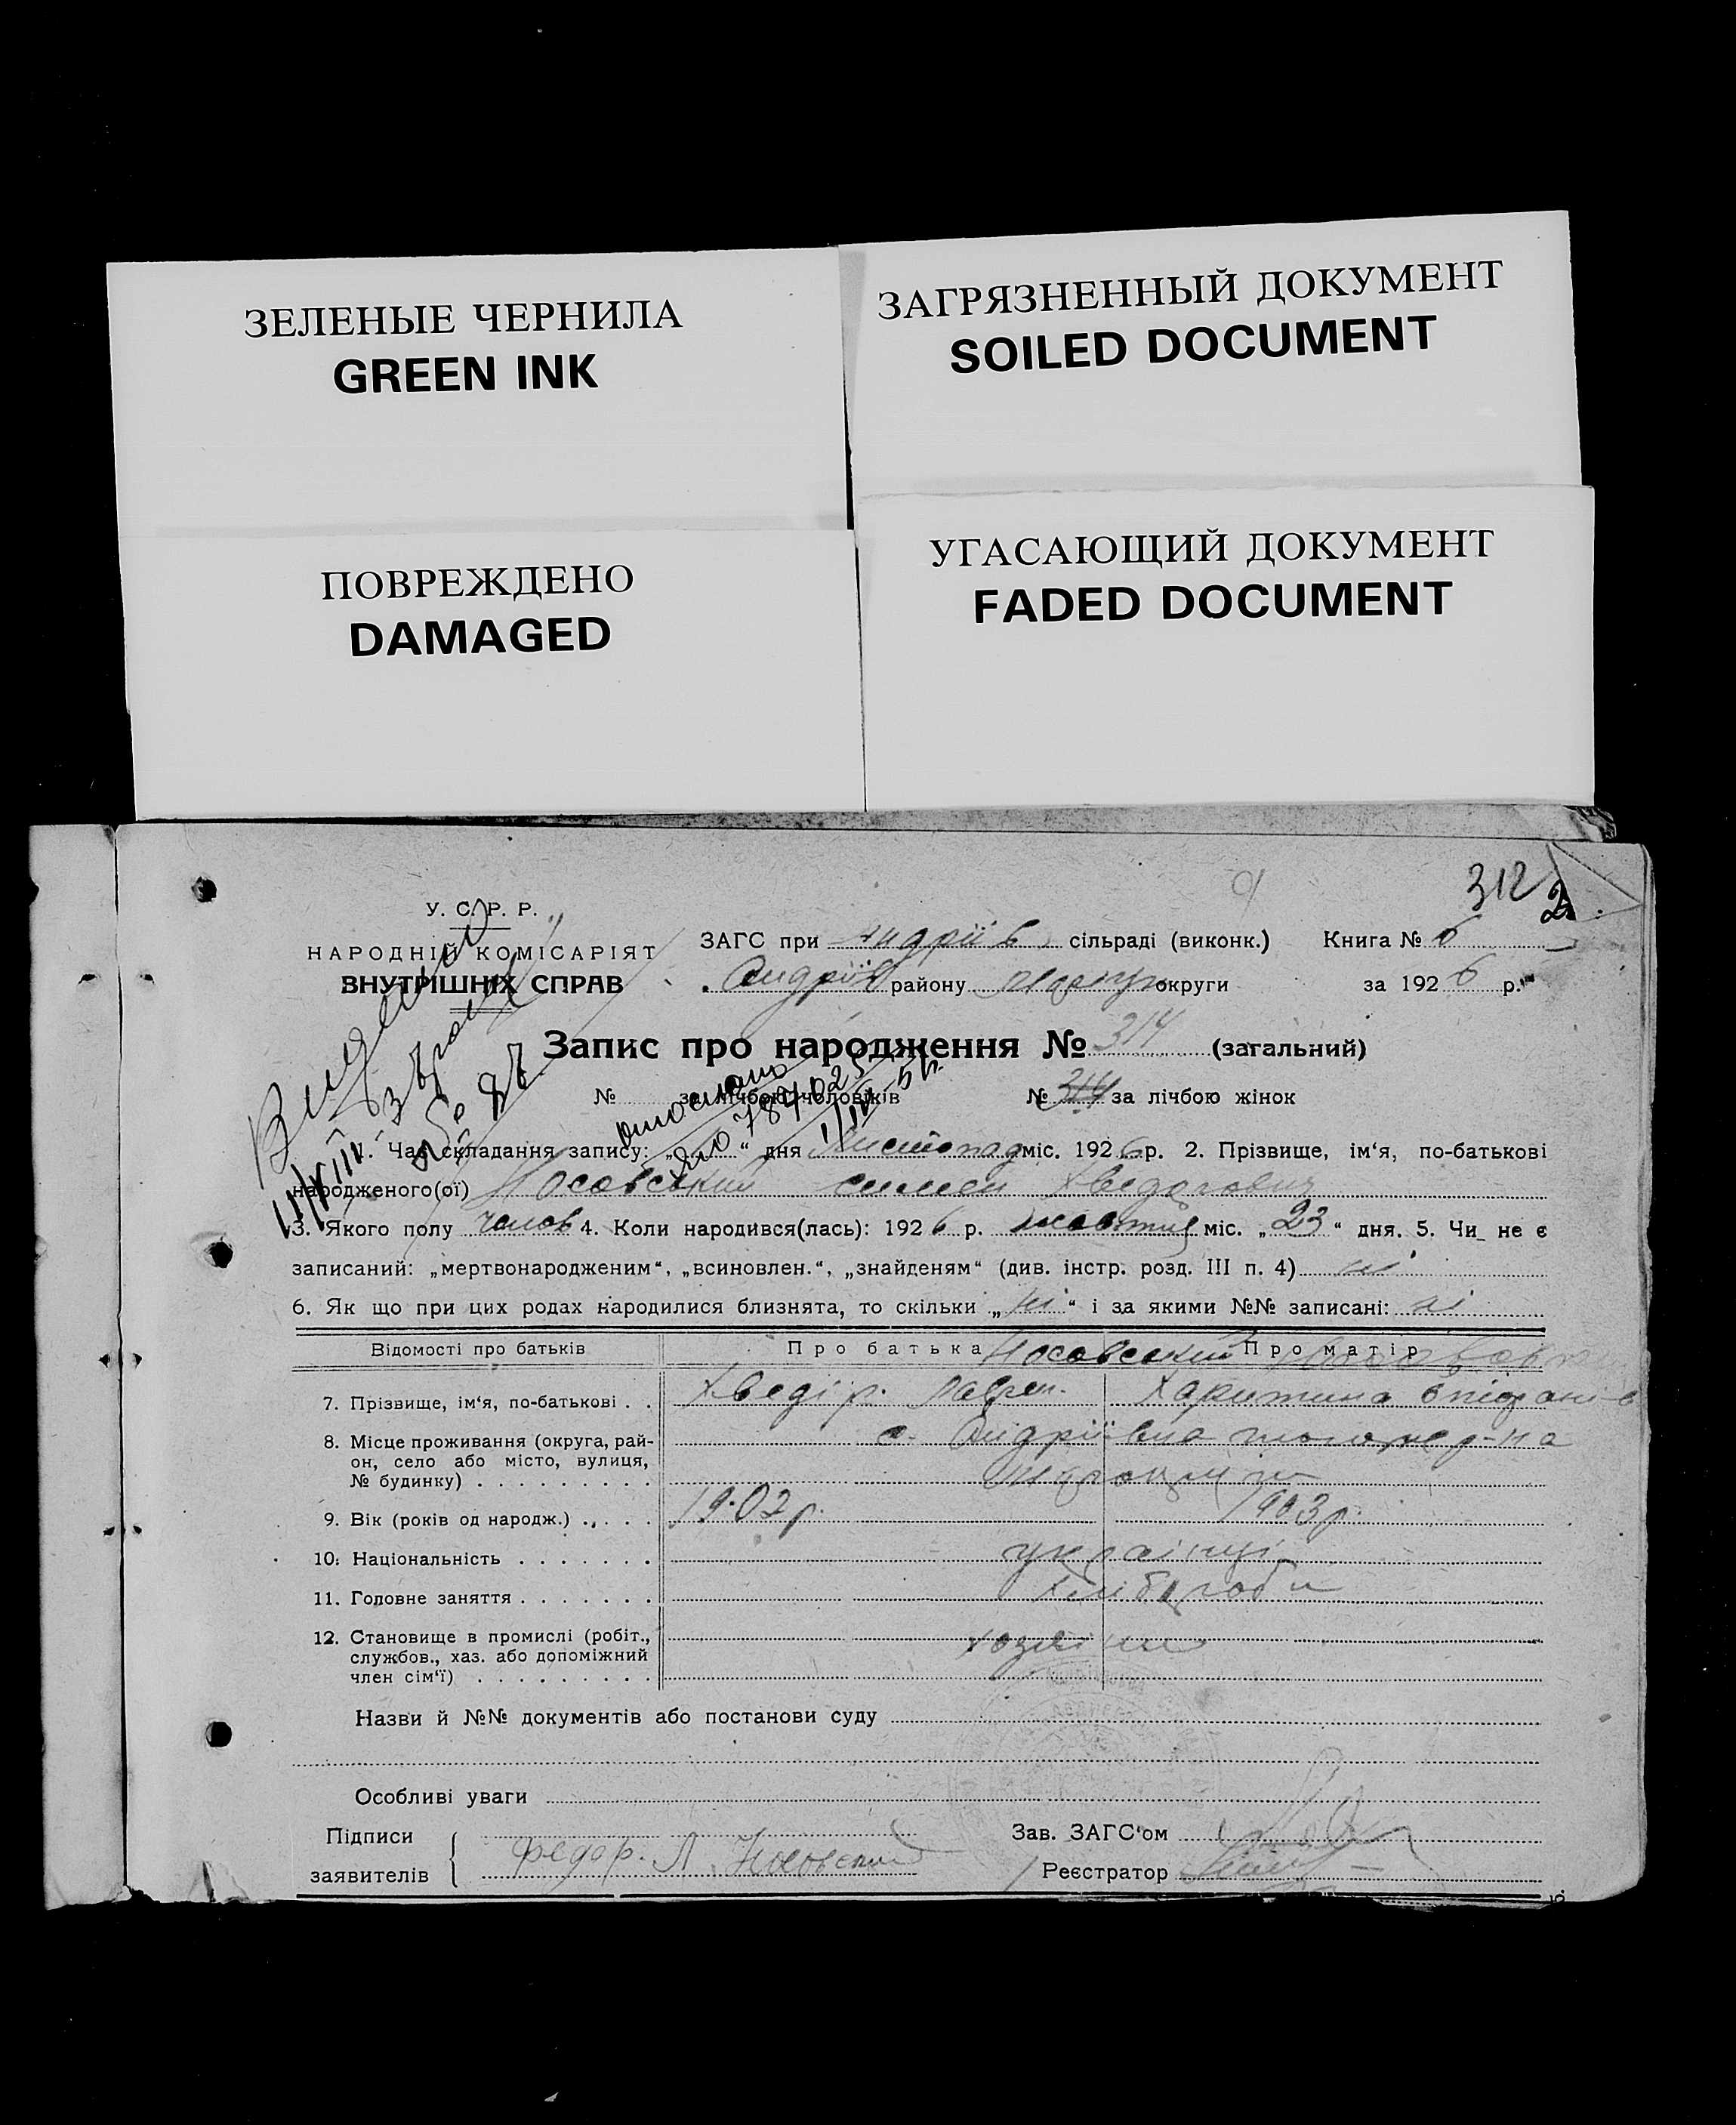 ЗЕЛЕНЫЕ ЧЕРНИЛА
GREEN INK
ЗАГРЯЗНЕННЫЙ ДОКУМЕНТ
SOILED DOCUMENT
ПОВРЕЖДЕНО
DAMAGED
УГАСАЮЩИЙ ДОКУМЕНТ
FADED DOCUMENT
312
2
У. С. Р. Р.
НАРОДНІЙ КОМІСАРІЯТ
ВНУТРІШНІХ СПРАВ
ЗАГС при Андріїв сільраді (виконк.) Книга № 6
Андріїв району округи за 1926 р.
Запис про народження № 314 (загальний)
№ за лічбою чоловіків № 314 за лічбою жінок
1. Час складання запису: „ “ дня Листопад міс. 1926 р. 2. Прізвище, ім‘я, по-батькові
народженого(ої) Носовський симен Хведорович
3. Якого полу чолов 4. Коли народився(лась): 1926 р. жовтня міс. „23“ дня. 5. Чи не є
записаний: „мертвонародженим“, „всиновлен.“, „знайденям“ (див. інстр. розд. III п. 4) ні
6. Як що при цих родах народилися близнята, то скільки „ні“ і за якими №№ записані: ні
Відомості про батьків Про батька Носовський Про матір
7. Прізвище, ім‘я, по-батькові . . Хведір. Лаврен. Харитина
8. Місце проживання (округа, рай-
он, село або місто, вулиця,
№ будинку) . . . . . . . . . с. Андріївка
9. Вік (років од народж.) . . . . . 1902 р. 1903 р.
10. Національність . . . . . . . українці
11. Головне заняття . . . . . . . хлібороби
12. Становище в промислі (робіт.,
службов., хаз. або допоміжний
член сім‘ї) . . . . . . . . . . хозяіни
Назви й №№ документів або постанови суду
Особливі уваги
Підписи
заявителів Федор. Л. Носовский
Зав. ЗАГС‘ом
Реєстратор